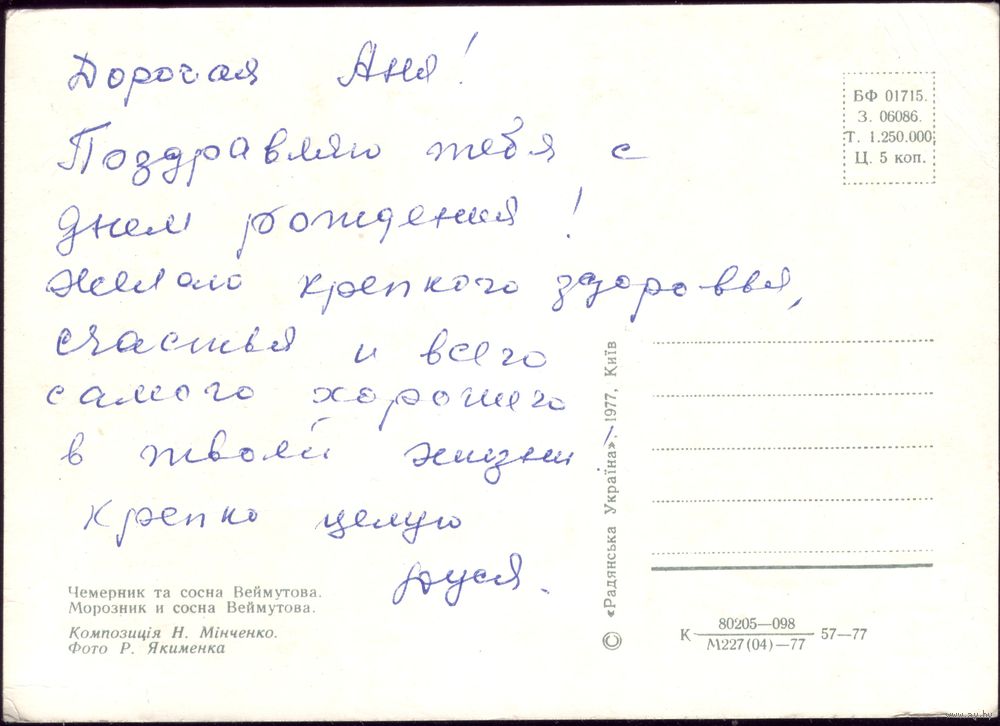 Дорогая Аня!
Поздравляю тебя с
днем рождения!
Желаю крепкого здоровья,
счастья и всего
самого хорошего
в твоей жизни
Крепко целую
Дуся.
Чемерник та сосна Веймутова.
Морозник и сосна Веймутова.
Композиція Н. Мінченко.
Фото Р. Якименка
© «Радянська Україна», 1977, Київ
БФ 01715.
З. 06086.
Т. 1.250.000
Ц. 5 коп.
К 80205—098 57—77
М227(04)—77
www.ay.by